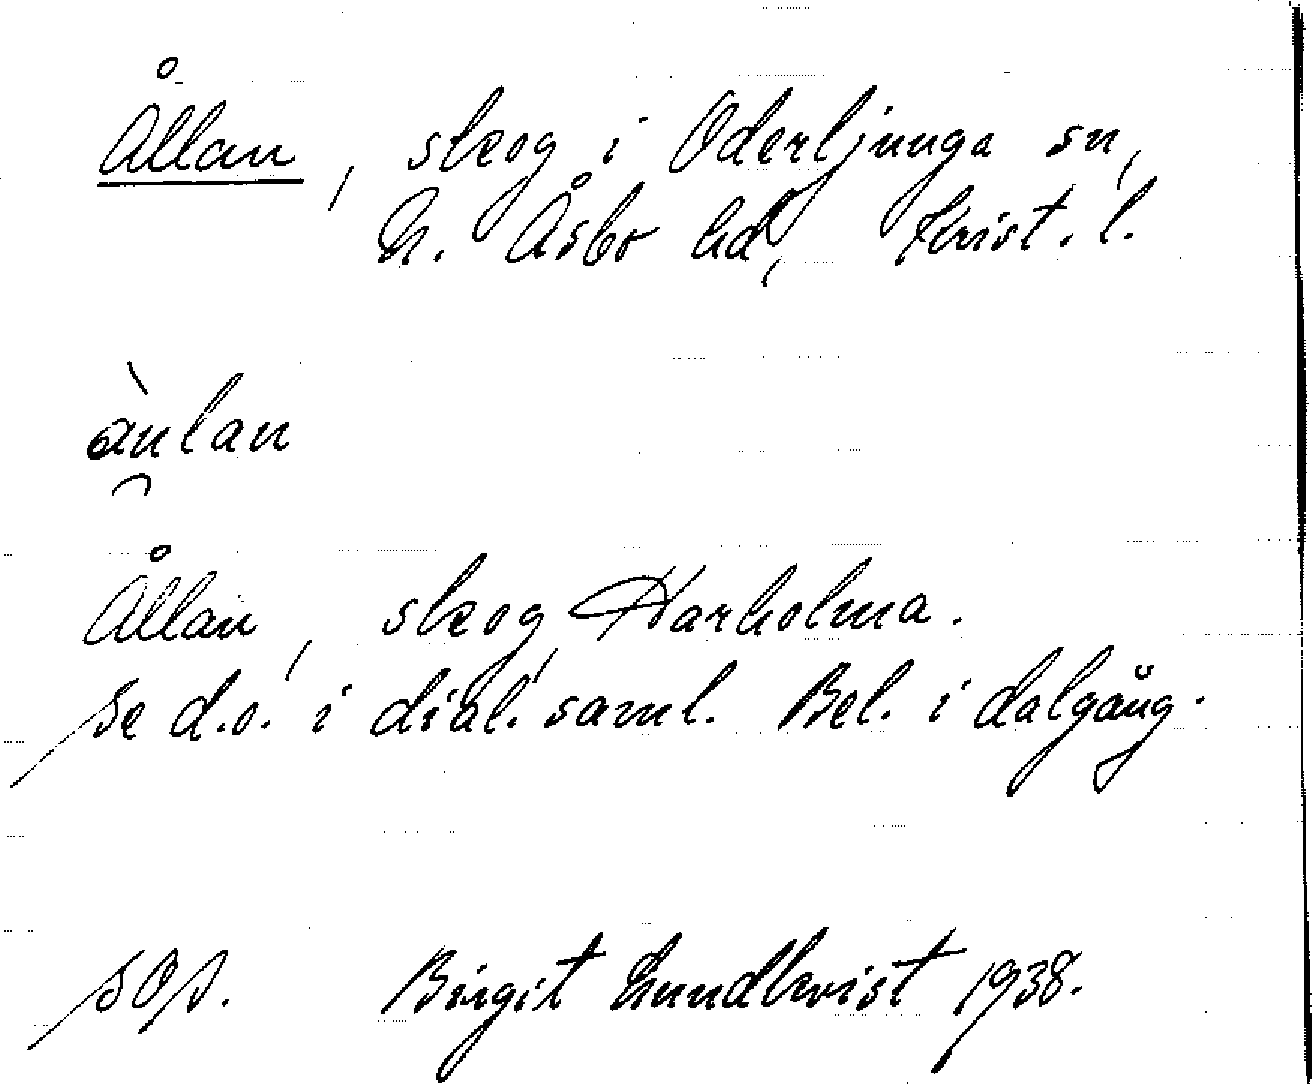 Ållan, skog i Oderljunga sn,
N. Åsbo hd, Krist. l.
ànlan
Ållan, skog, Harholma.
Se d.o. i dial. saml. Bel. i dalgång.
SOS. Birgit Lundkvist 1938.